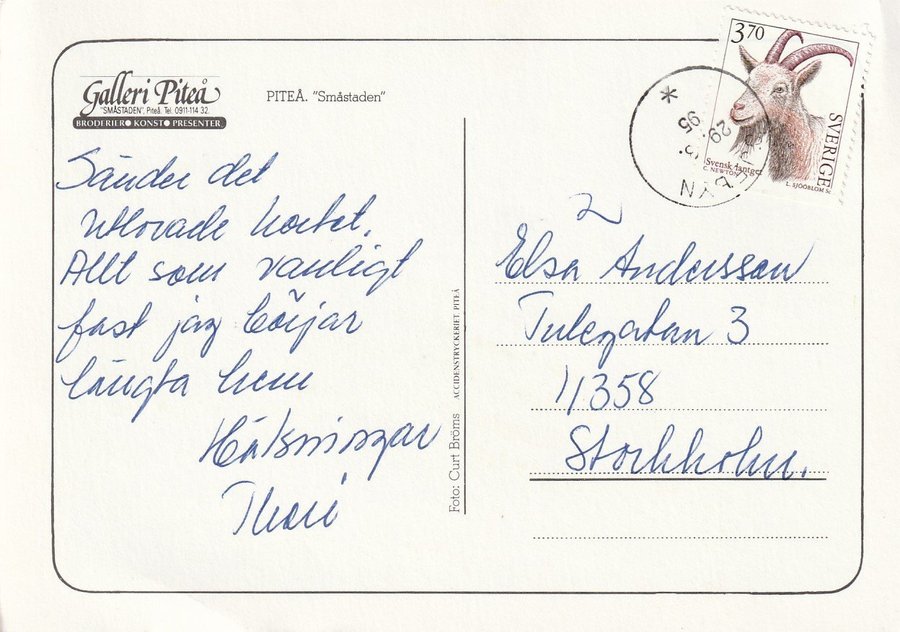 Galleri Piteå
"SMÅSTADEN", Piteå. Tel: 0911-114 32.
BRODERIER • KONST • PRESENTER
PITEÅ. "Småstaden"
Sänder det
utlovade kortet.
Allt som vanligt
fast jag börjar
längta hem
Hälsningar
ACCIDENSTRYCKERIET PITEÅ
Foto: Curt Bröms
3,70
SVERIGE
Svensk lantget
C. NEWTON
L. SJÖÖBLOM SC
29. 5. 95
BYN
Elsa Andersson
Tulegatan 3
11358
Stockholm.